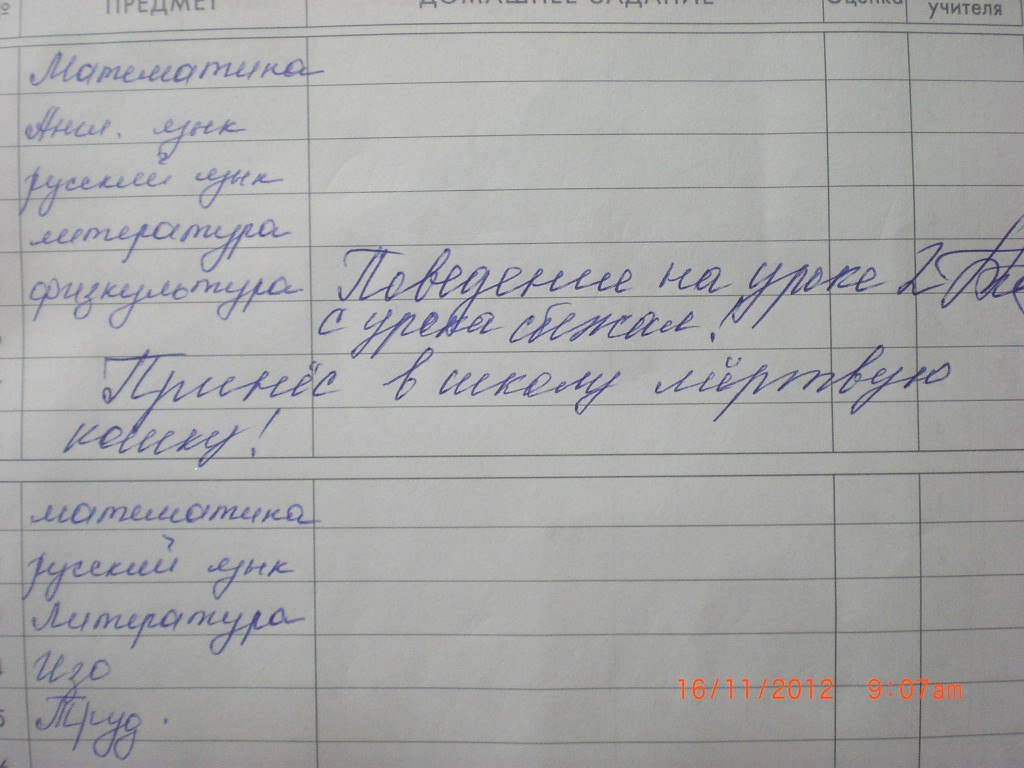 № ПРЕДМЕТ ДОМАШНЕЕ ЗАДАНИЕ Оценка учителя
Математика
Англ. язык
русский язык
литература
физкультура Поведение на уроке 2
с урока сбежал!
Принёс в школу мёртвую
кошку!
математика
русский язык
Литература
Изо
16/11/2012 9:07am
5 Труд.